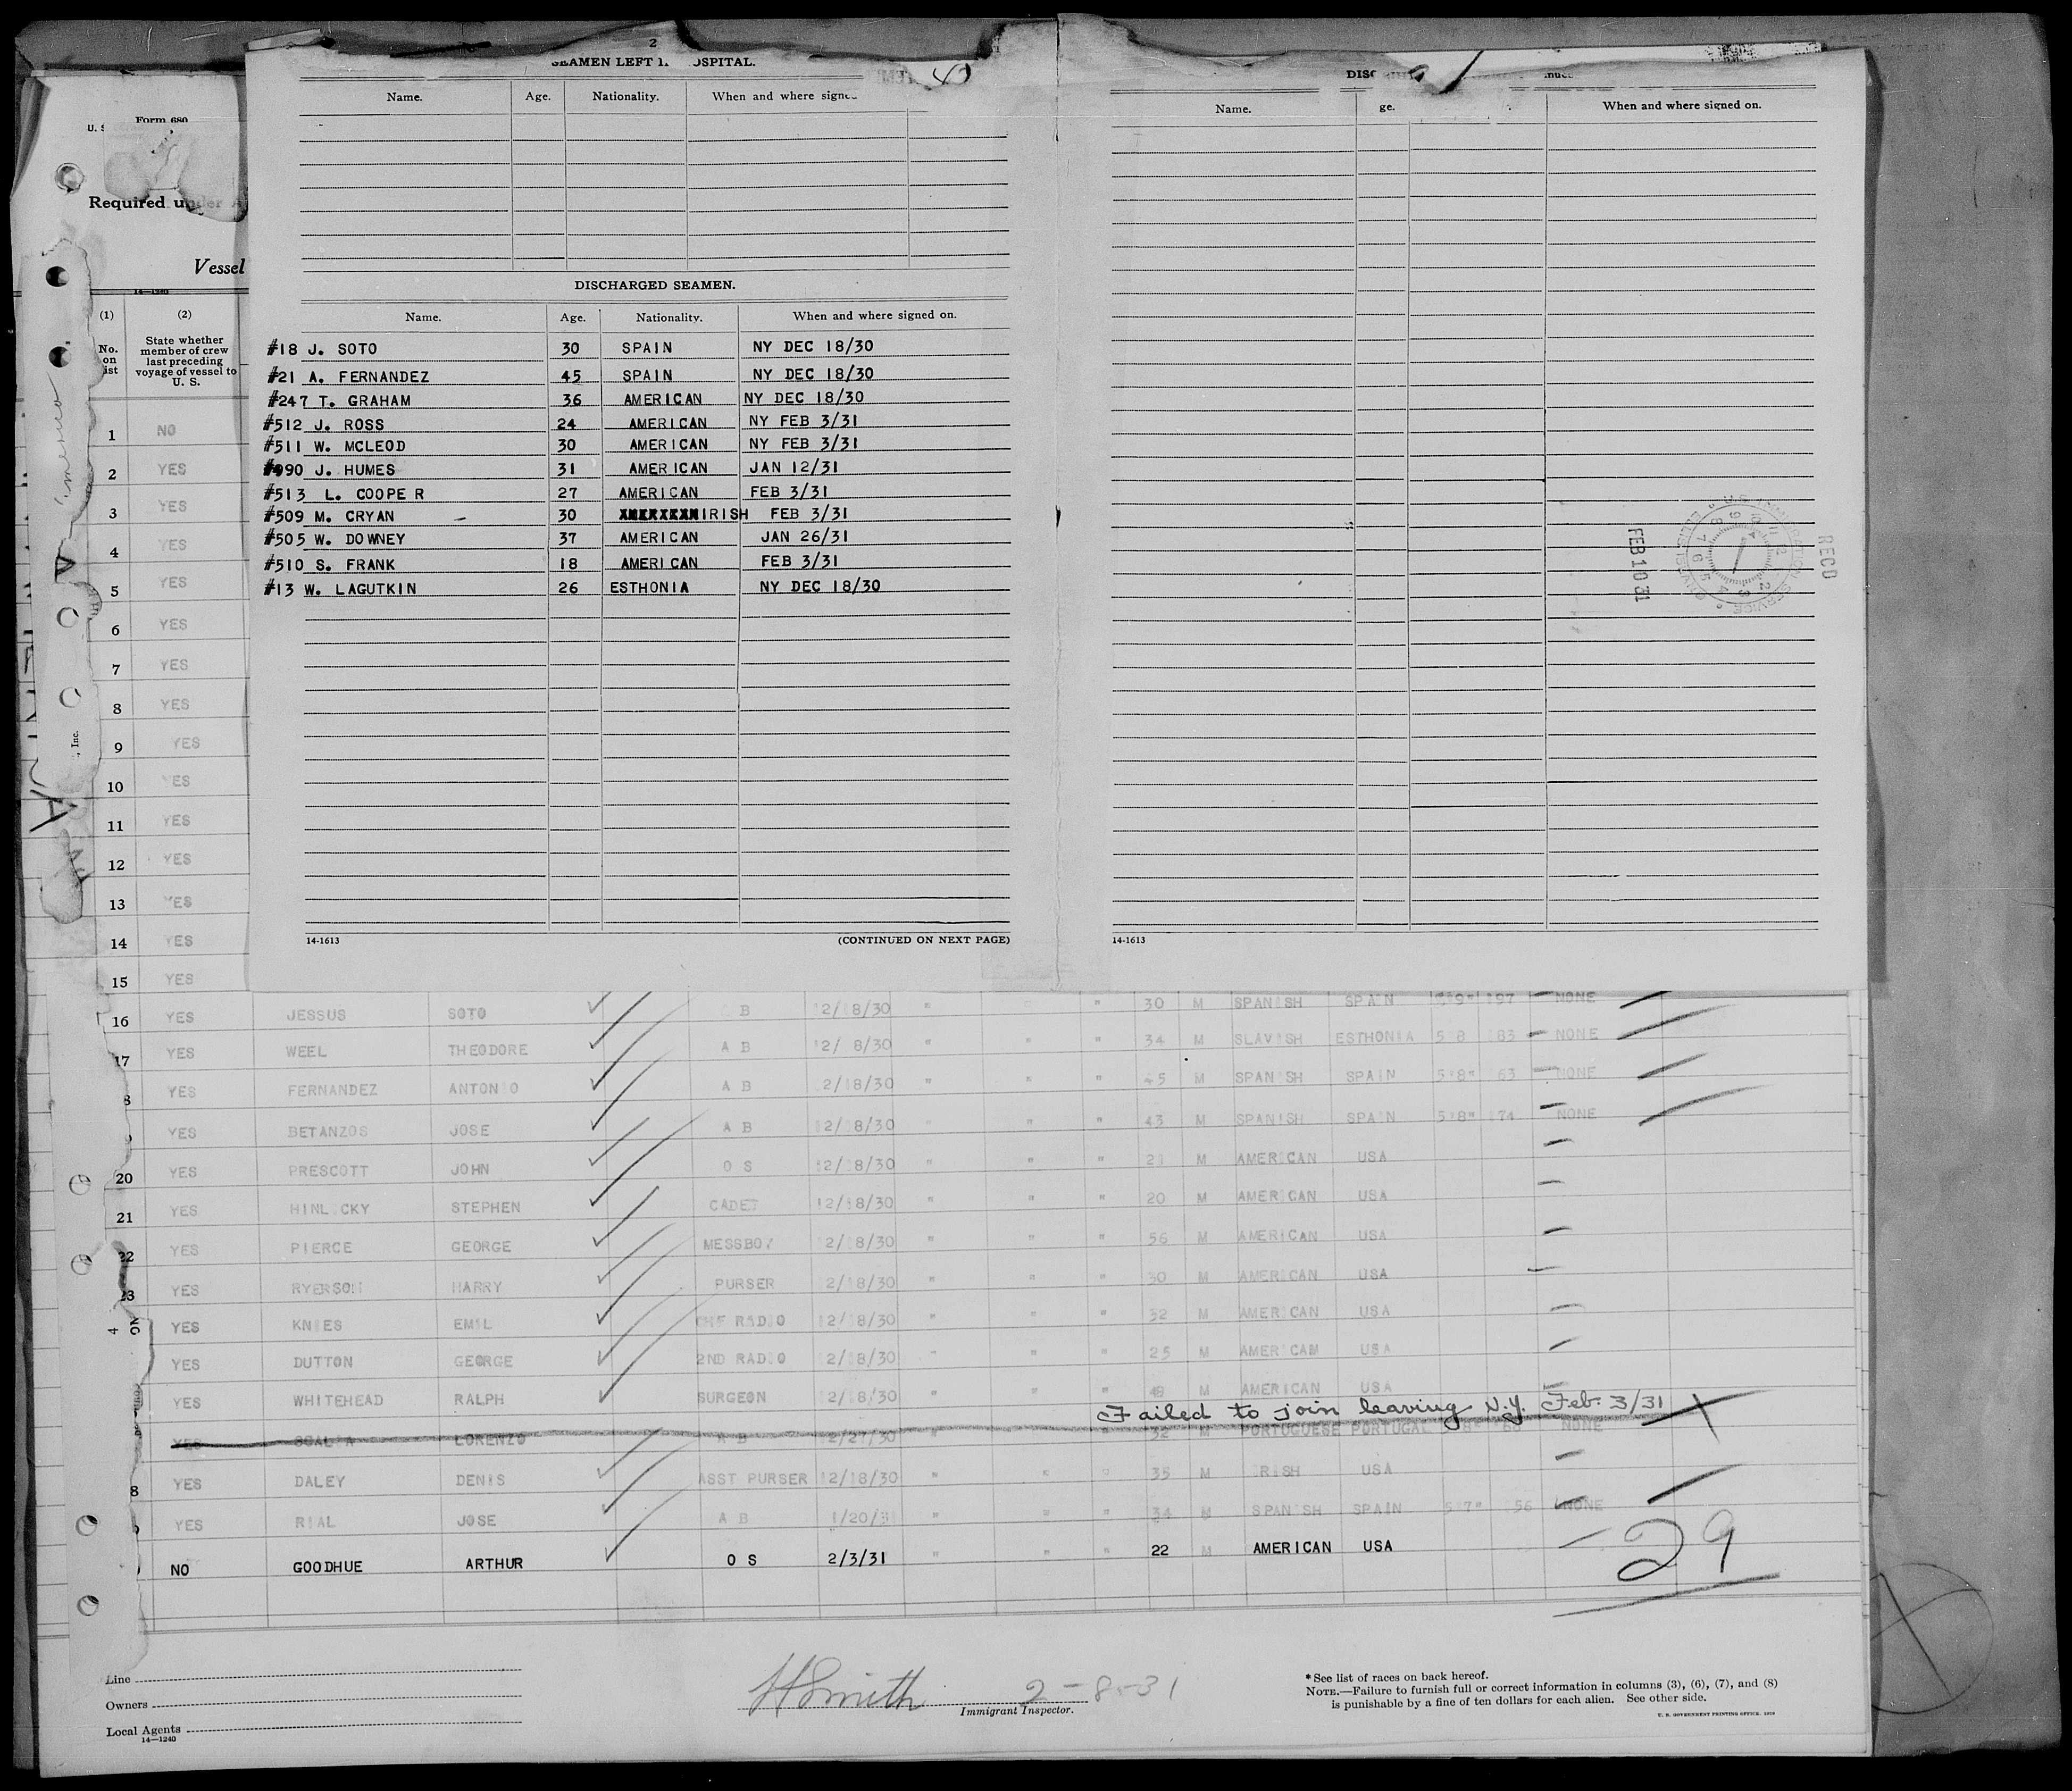 2
SEAMEN LEFT IN HOSPITAL.
Name. Age. Nationality. When and where signe
DISCHARGED SEAMEN.
Name. Age. Nationality. When and where signed on.
#18 J. SOTO 30 SPAIN NY DEC 18/30
#21 A. FERNANDEZ 45 SPAIN NY DEC 18/30
#247 T. GRAHAM 36 AMERICAN NY DEC 18/30
#512 J. ROSS 24 AMERICAN NY FEB 3/31
#511 W. MCLEOD 30 AMERICAN NY FEB 3/31
#990 J. HUMES 31 AMERICAN JAN 12/31
#513 L. COOPER 27 AMERICAN FEB 3/31
#509 M. CRYAN 30 IRISH FEB 3/31
#505 W. DOWNEY 37 AMERICAN JAN 26/31
#510 S. FRANK 18 AMERICAN FEB 3/31
#13 W. LAGUTKIN 26 ESTHONIA NY DEC 18/30
14-1613 (CONTINUED ON NEXT PAGE)
Name. ge. When and where signed on.
RECD
FEB 10 31
14-1613
Form 680
U. S
Required under A
Vessel
14—1240
(1) (2)
No. on ist
State whether
member of crew
last preceding
voyage of vessel to
U. S.
1 NO
2 YES
3 YES
4 YES
5 YES
6 YES
7 YES
8 YES
9 YES
10 YES
11 YES
12 YES
13 YES
14 YES
15 YES
, Inc.
16 YES JESSUS SOTO B 12/18/30 " " " 30 M SPANISH SPAIN 5'9" 197 NONE
17 YES WEEL THEODORE A B 12/18/30 " " " 34 M SLAVISH ESTHONIA 5 8 183 NONE
8 YES FERNANDEZ ANTONIO A B 12/18/30 " " " 45 M SPANISH SPAIN 5'8" 163 NONE
YES BETANZOS JOSE A B 12/18/30 " " " 43 M SPANISH SPAIN 5'8" 174 NONE
20 YES PRESCOTT JOHN O S 12/18/30 " " " 21 M AMERICAN USA
21 YES HINLICKY STEPHEN CADET 12/18/30 " " " 20 M AMERICAN USA
22 YES PIERCE GEORGE MESSBOY 12/18/30 " " " 56 M AMERICAN USA
23 YES RYERSON HARRY PURSER 12/18/30 " " " 30 M AMERICAN USA
4 YES KNIES EMIL CHF RADIO 12/18/30 " " " 32 M AMERICAN USA
YES DUTTON GEORGE 2ND RADIO 12/18/30 " " " 25 M AMERICAN USA
YES WHITEHEAD RALPH SURGEON 12/18/30 " " " 48 M AMERICAN USA
Failed to join leaving N.Y. Feb. 3/31
YES LORENZO A B 12/27/30 " " " 32 M PORTUGUESE PORTUGAL NONE
8 YES DALEY DENIS ASST PURSER 12/18/30 " " " 35 M IRISH USA
YES RIAL JOSE A B 1/20/31 " " " 34 M SPANISH SPAIN 5'7" 156 NONE
NO GOODHUE ARTHUR O S 2/3/31 " " " 22 M AMERICAN USA
29
Line
Owners
Local Agents
14—1240
H Smith 2-8-31
Immigrant Inspector.
* See list of races on back hereof.
NOTE.—Failure to furnish full or correct information in columns (3), (6), (7), and (8)
is punishable by a fine of ten dollars for each alien. See other side.
U. S. GOVERNMENT PRINTING OFFICE